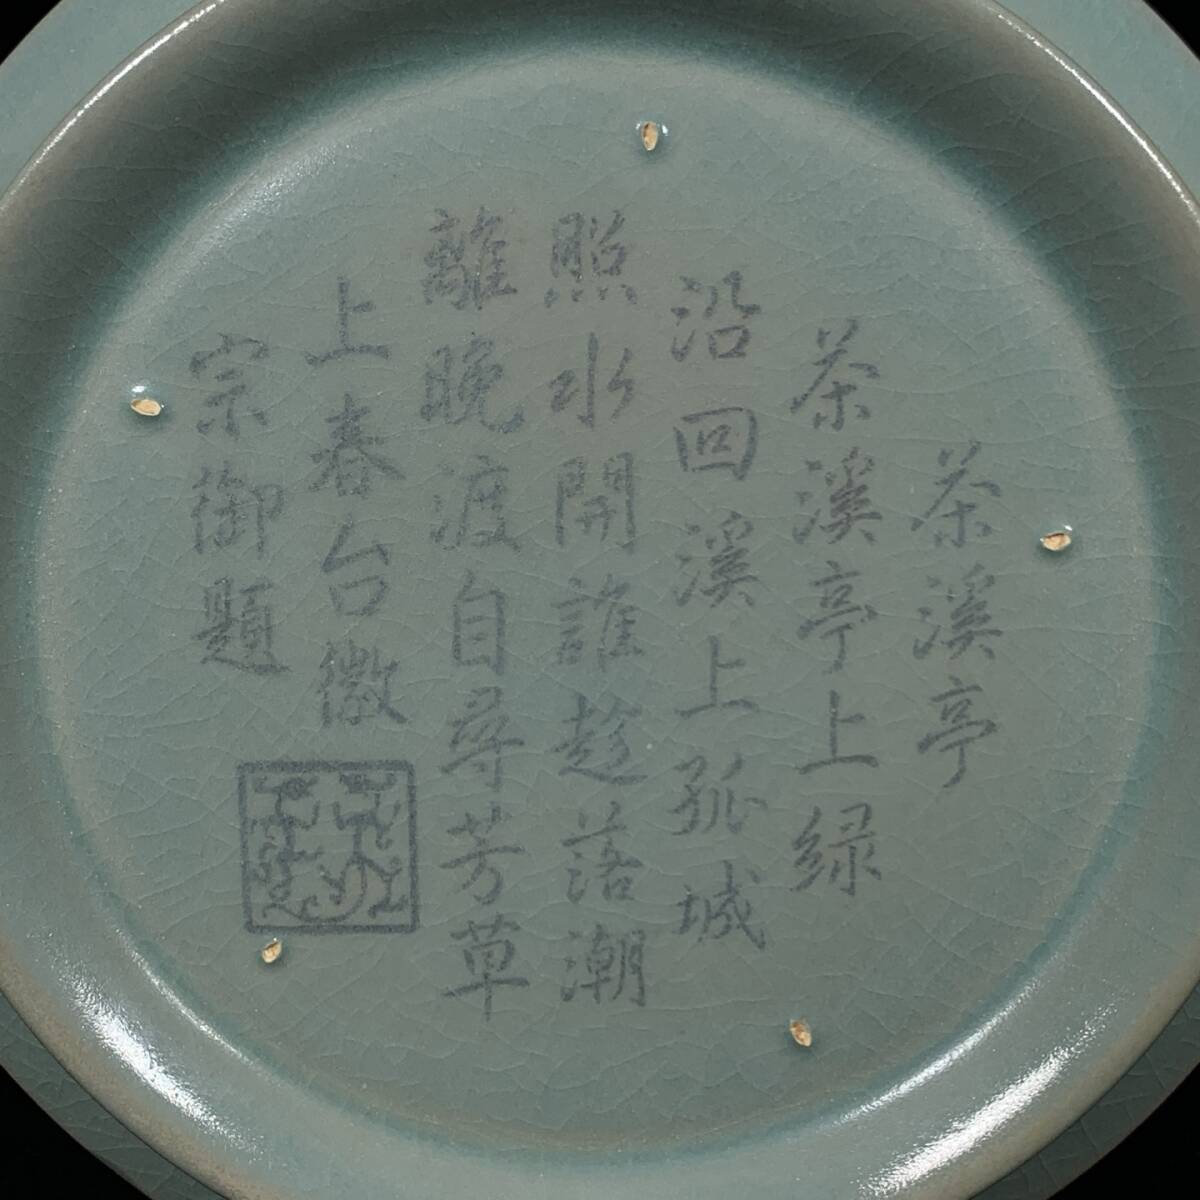 茶溪亭
茶溪亭上緑
沿回溪上孤城
照水開誰趁落潮
離晚渡自尋芳草
上春台徽
宗御題